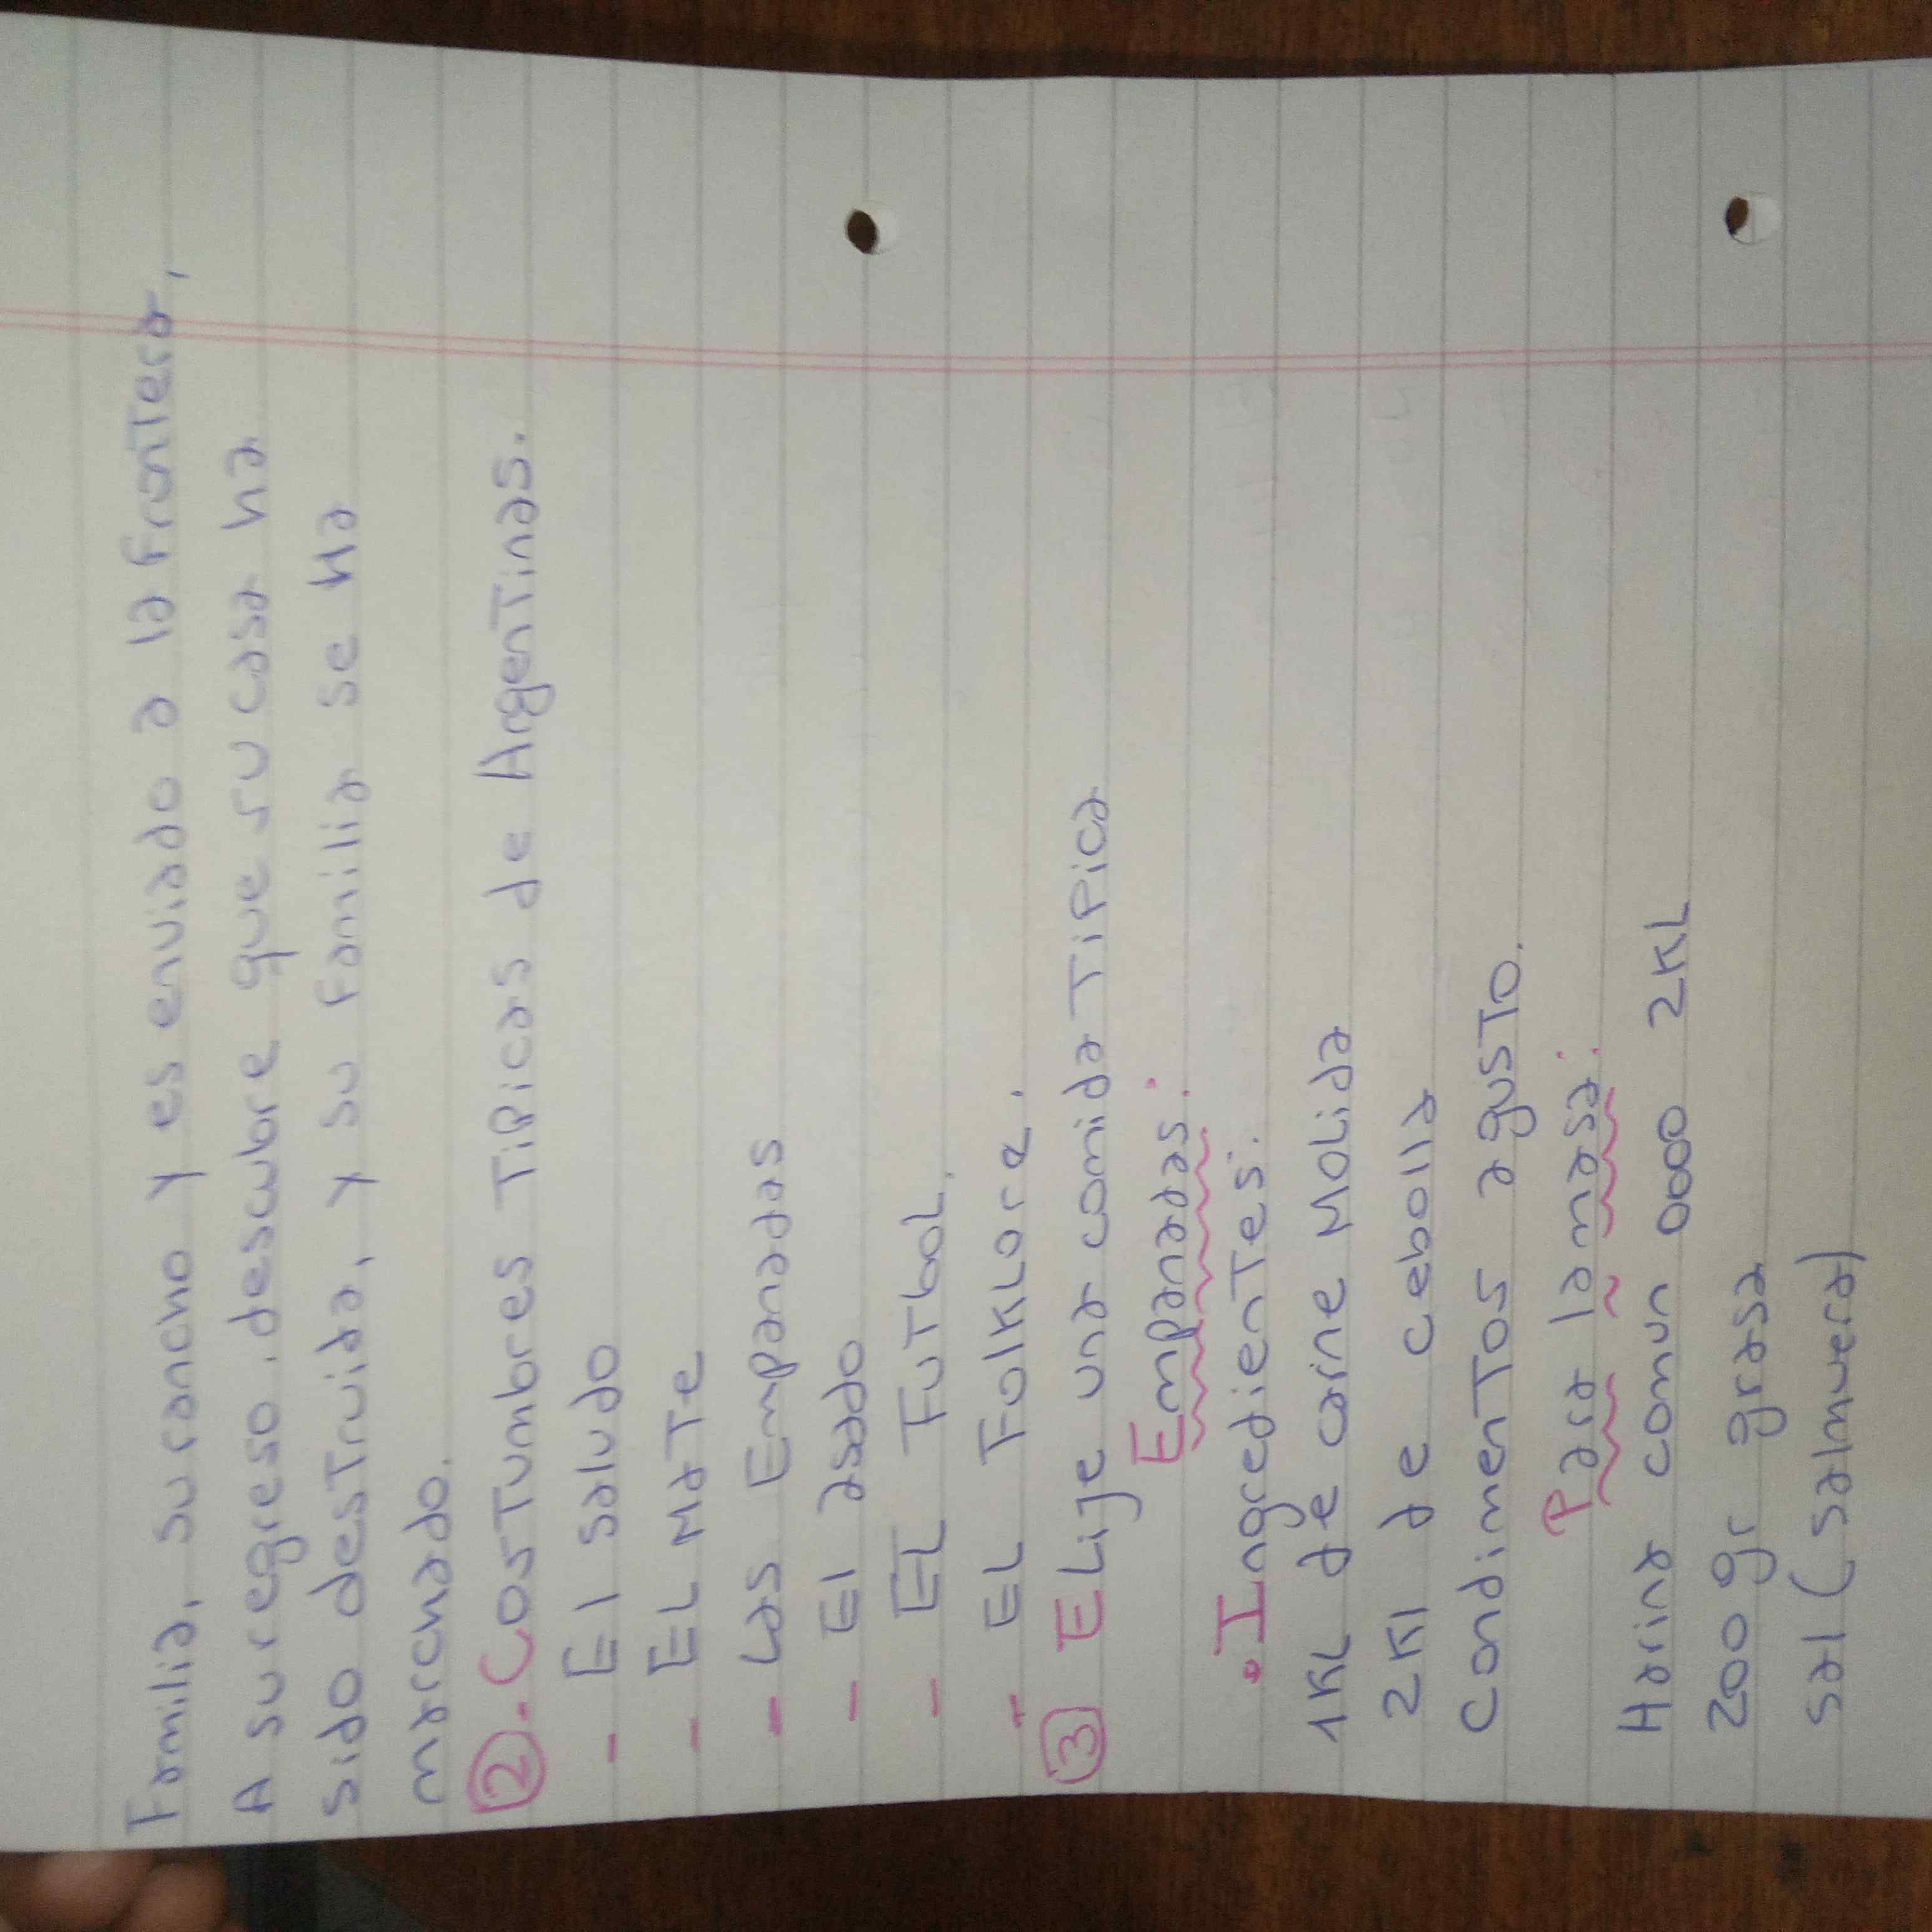 Familia, su rancho y es enviado a la frontera,
A su regreso, descubre que su casa ha
sido destruida, y su familia se ha
marchado.
2. Costumbres Tipicas de Argentinas.
- El saludo
- EL Mate
- Las Empanadas
- El asado
- EL Futbol.
- EL Folklore.
3 Elije una comida Tipica
Empanadas:
• Ingredientes:
1KL de carne Molida
2Kl de cebolla
Condimentos a gusto.
Para la masa:
Harina comun 0000 2KL
200 gr grasa
sal (salmuera)